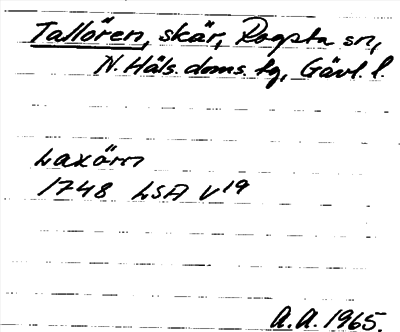 Tallören, skär, Rogsta sn,
N. Häls. doms. tg, Gävl. l.
Laxörn
1748 LSA V19
A.A. 1965.